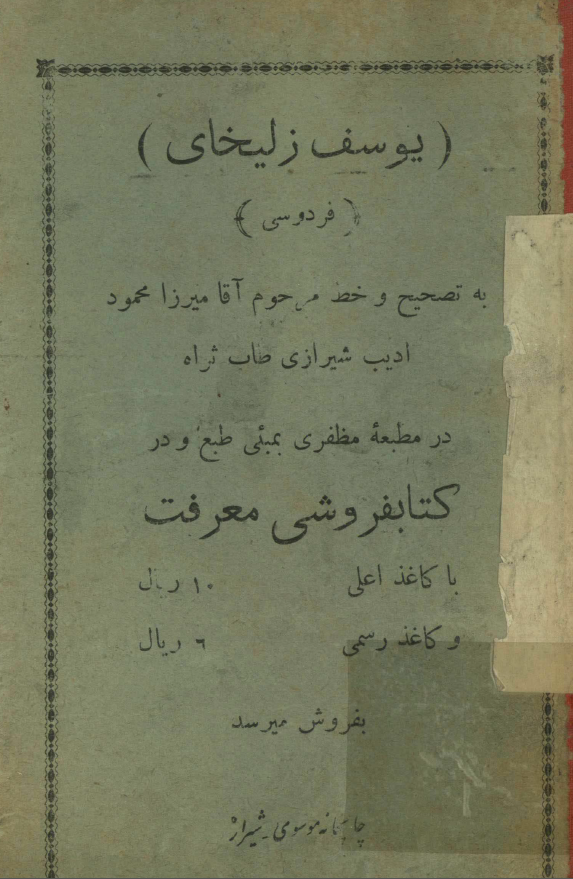 ( یوسف زلیخای )
( فردوسی )
به تصحیح و خط مرحوم آقا میرزا محمود
ادیب شیرازی طاب ثراه
در مطبعهٔ مظفری بمبئی طبع و در
کتابفروشی معرفت
با کاغذ اعلی ۱۰ ریال
و کاغذ رسمی ٦ ریال
بفروش میرسد
چاپخانه موسوی ـ شیراز